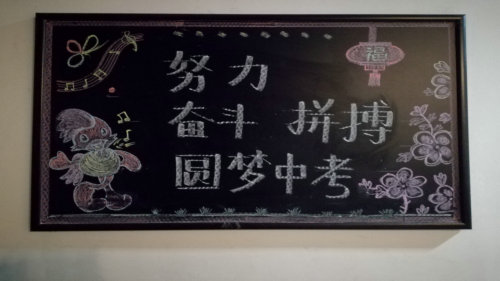 努力
奋斗 拼搏
圆梦中考
福